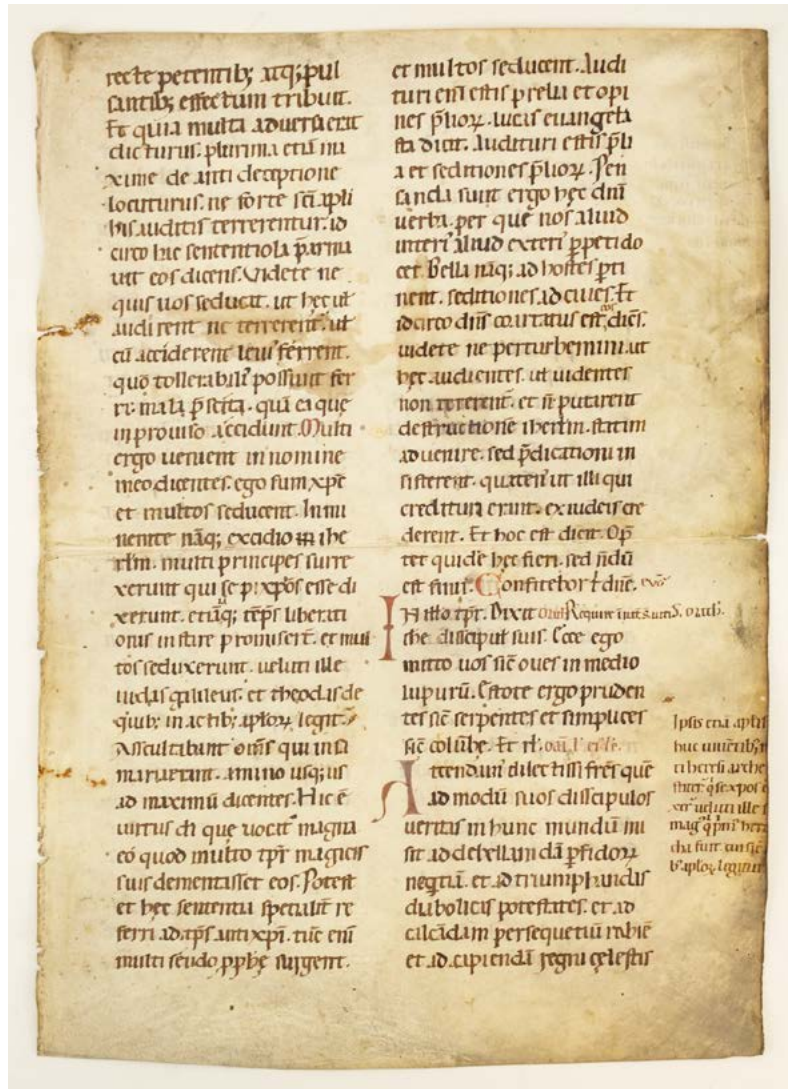 recte petentib; atq; pul
santib; effectum tribuit.
Et quia multa aduersa erat
dicturus. plurima etiā ma
xime de anti deceptione
locuturus. ne forte sc̄i apl̄i
his auditis terrerentur. id
circo hac sententiola p̄amu
uit eos dicens. Videte ne
quis uos seducat. ut hęc ut
audirent ne terrerent᷑. ut
cū acciderent leui᷑ ferrent.
quō tollerabili᷑ possunt fer
ri mala p̄scita. quā ea quę
inprouiso accidunt. Multi
ergo uenient in nomine
meo dicentes. ego sum xp̄c
et multos seducent. Inmi
nente nāq; excidio ihe
rl̄m. multi principes surre
xerunt qui se xp̄os esse di
xerunt. etiāq; tēp̄s liberati
onis instare promiserī. et mul
tos seduxerunt. ueluti ille
iudas galileus. et theodas de
quib; in actib; aploꝝ legit᷑.
Ascultabant om̄s qui in sa
maria erant. a minimo usq; us
ad maximū dicentes. Hic ē
uirtus dī que uocat᷑ magna
eó quod multo tp̄r magicis
suis dementasset eos. Potest
et hęc sententia specialit̄ re
ferri ad tp̄s antixp̄i. tūc enī
multi seudo pp̄hę surgent.
et multos seducent. Audi
turi enī estis prelia et opi
nes p̄lioꝝ. lucas euangeli
sta dicit. Audituri estis p̄li
a et seditiones p̄lioꝝ. Pen
sanda sunt ergo hęc dn̄i
uerba. per que nos aliud
interi᷑ aliud exteri᷑ ꝑpeti do
cet. Bella nāq; ad hostes ꝑti
nent. seditiones ad ciues. Et
idcirco dn̄s cohortatus est eos dicēs.
uidete ne perturbemini. ut
hęc audientes. ut uidentes
non terrerent᷑. et n̄ putarent
destructionē iherl̄m. statim
aduenire. sed p̄dicationi in
sisterent. quaten᷑ ut illi qui
credituri erant. ex iudeis cre
derent. Et hoc est dicit. Op̄
tet quidē hęc fieri. sed n̄dū
est finis. Confitebor t̄ dn̄e.
IN illo tp̄r. Dixit
ihc discipul̄ suis. Ecce ego
mitto uos sic̄ oues in medio
lupurū. Estote ergo pruden
tes sic̄ serpentes et simplices
sic̄ colūbę. Et rl̄.
Attendam᷑ dilectissi fr̄es que
admodū suos discipulos
ueritas in hunc mundū mi
sit ad debellandā ꝑfidoꝝ
neq̄tiā. et ad triumphandas
diabolicas potestates. et ad
calcādam persequetiū rabiē
et ad capiendā regni cęlestis
Ipsis etiā
ueluti ille